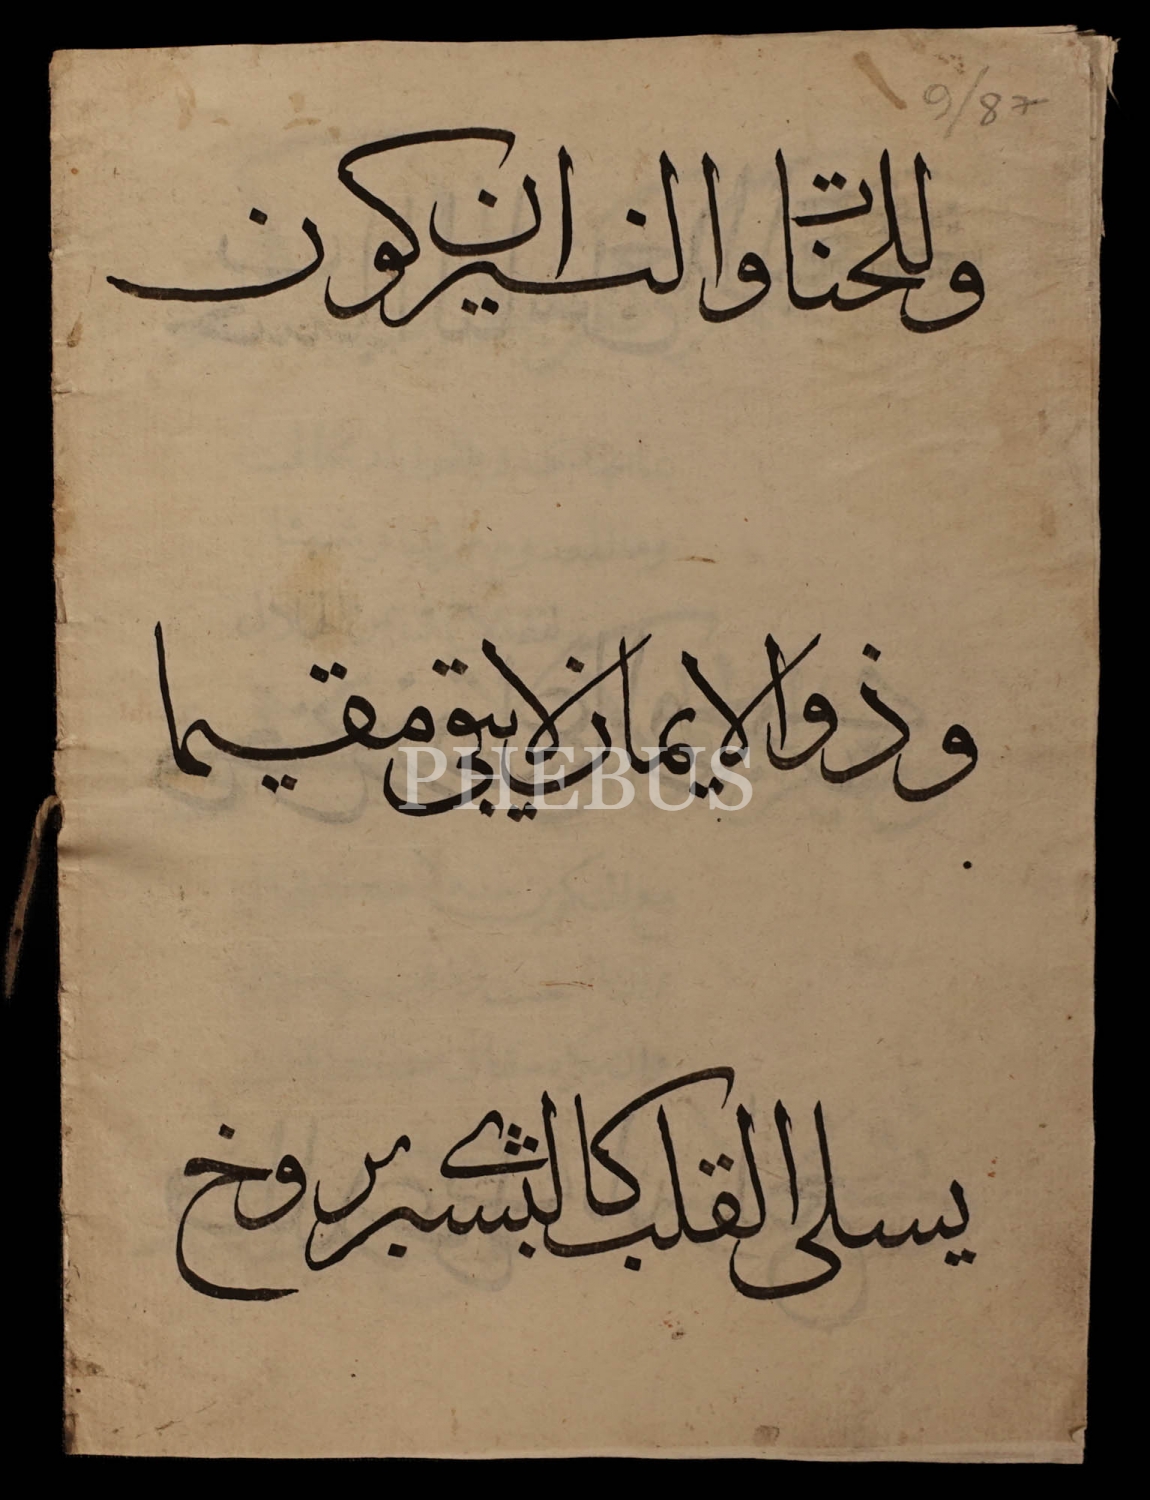 9/87
وللجنات والنيران كون
وذو الايمان لا يبقى مقيما
PHEBUS
يسلى القلب كالبشرى بروخ